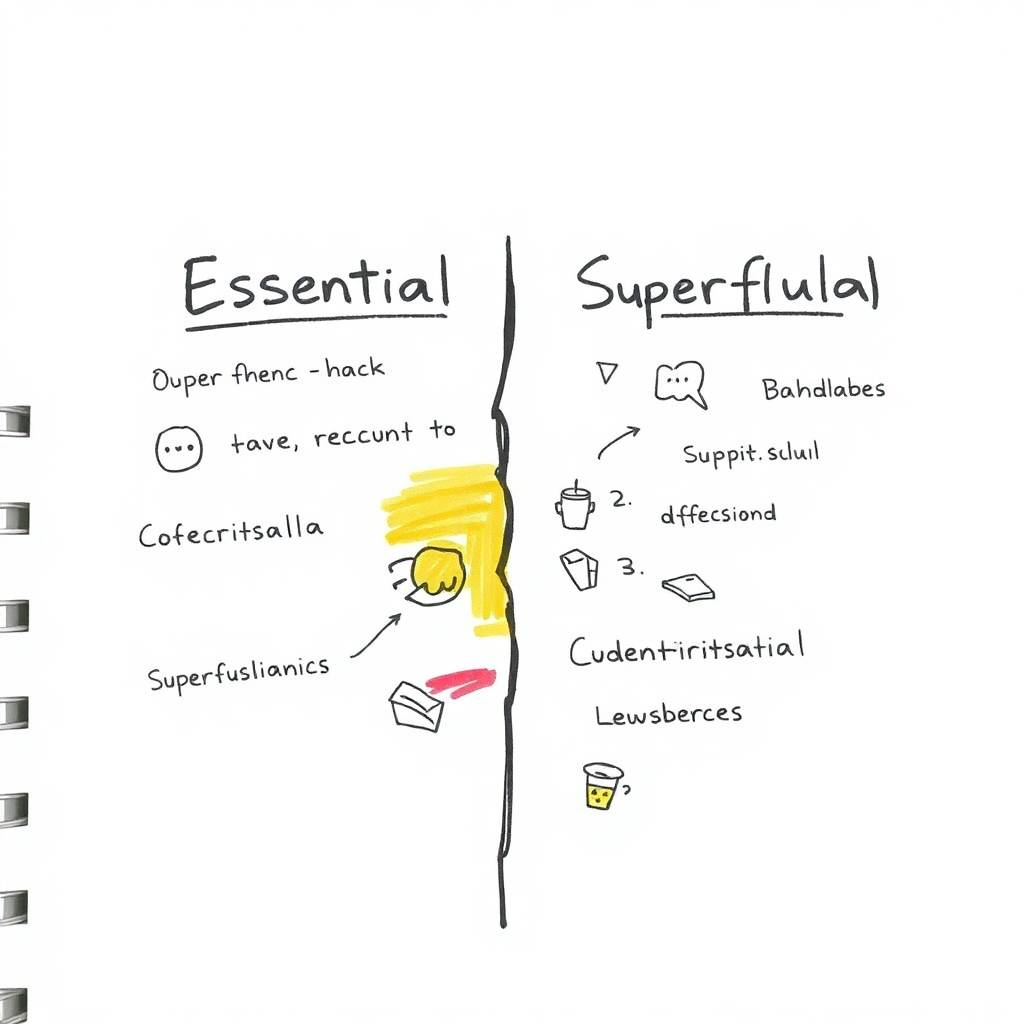 Essential
Ouper fhenc - hack
tave, reccunt to
Cofecritsalla
Superfuslianics
Superflulal
Bahdlabes
Suppit.scluil
2. dffecsiond
3.
Cudentiritsatial
Lewsberces